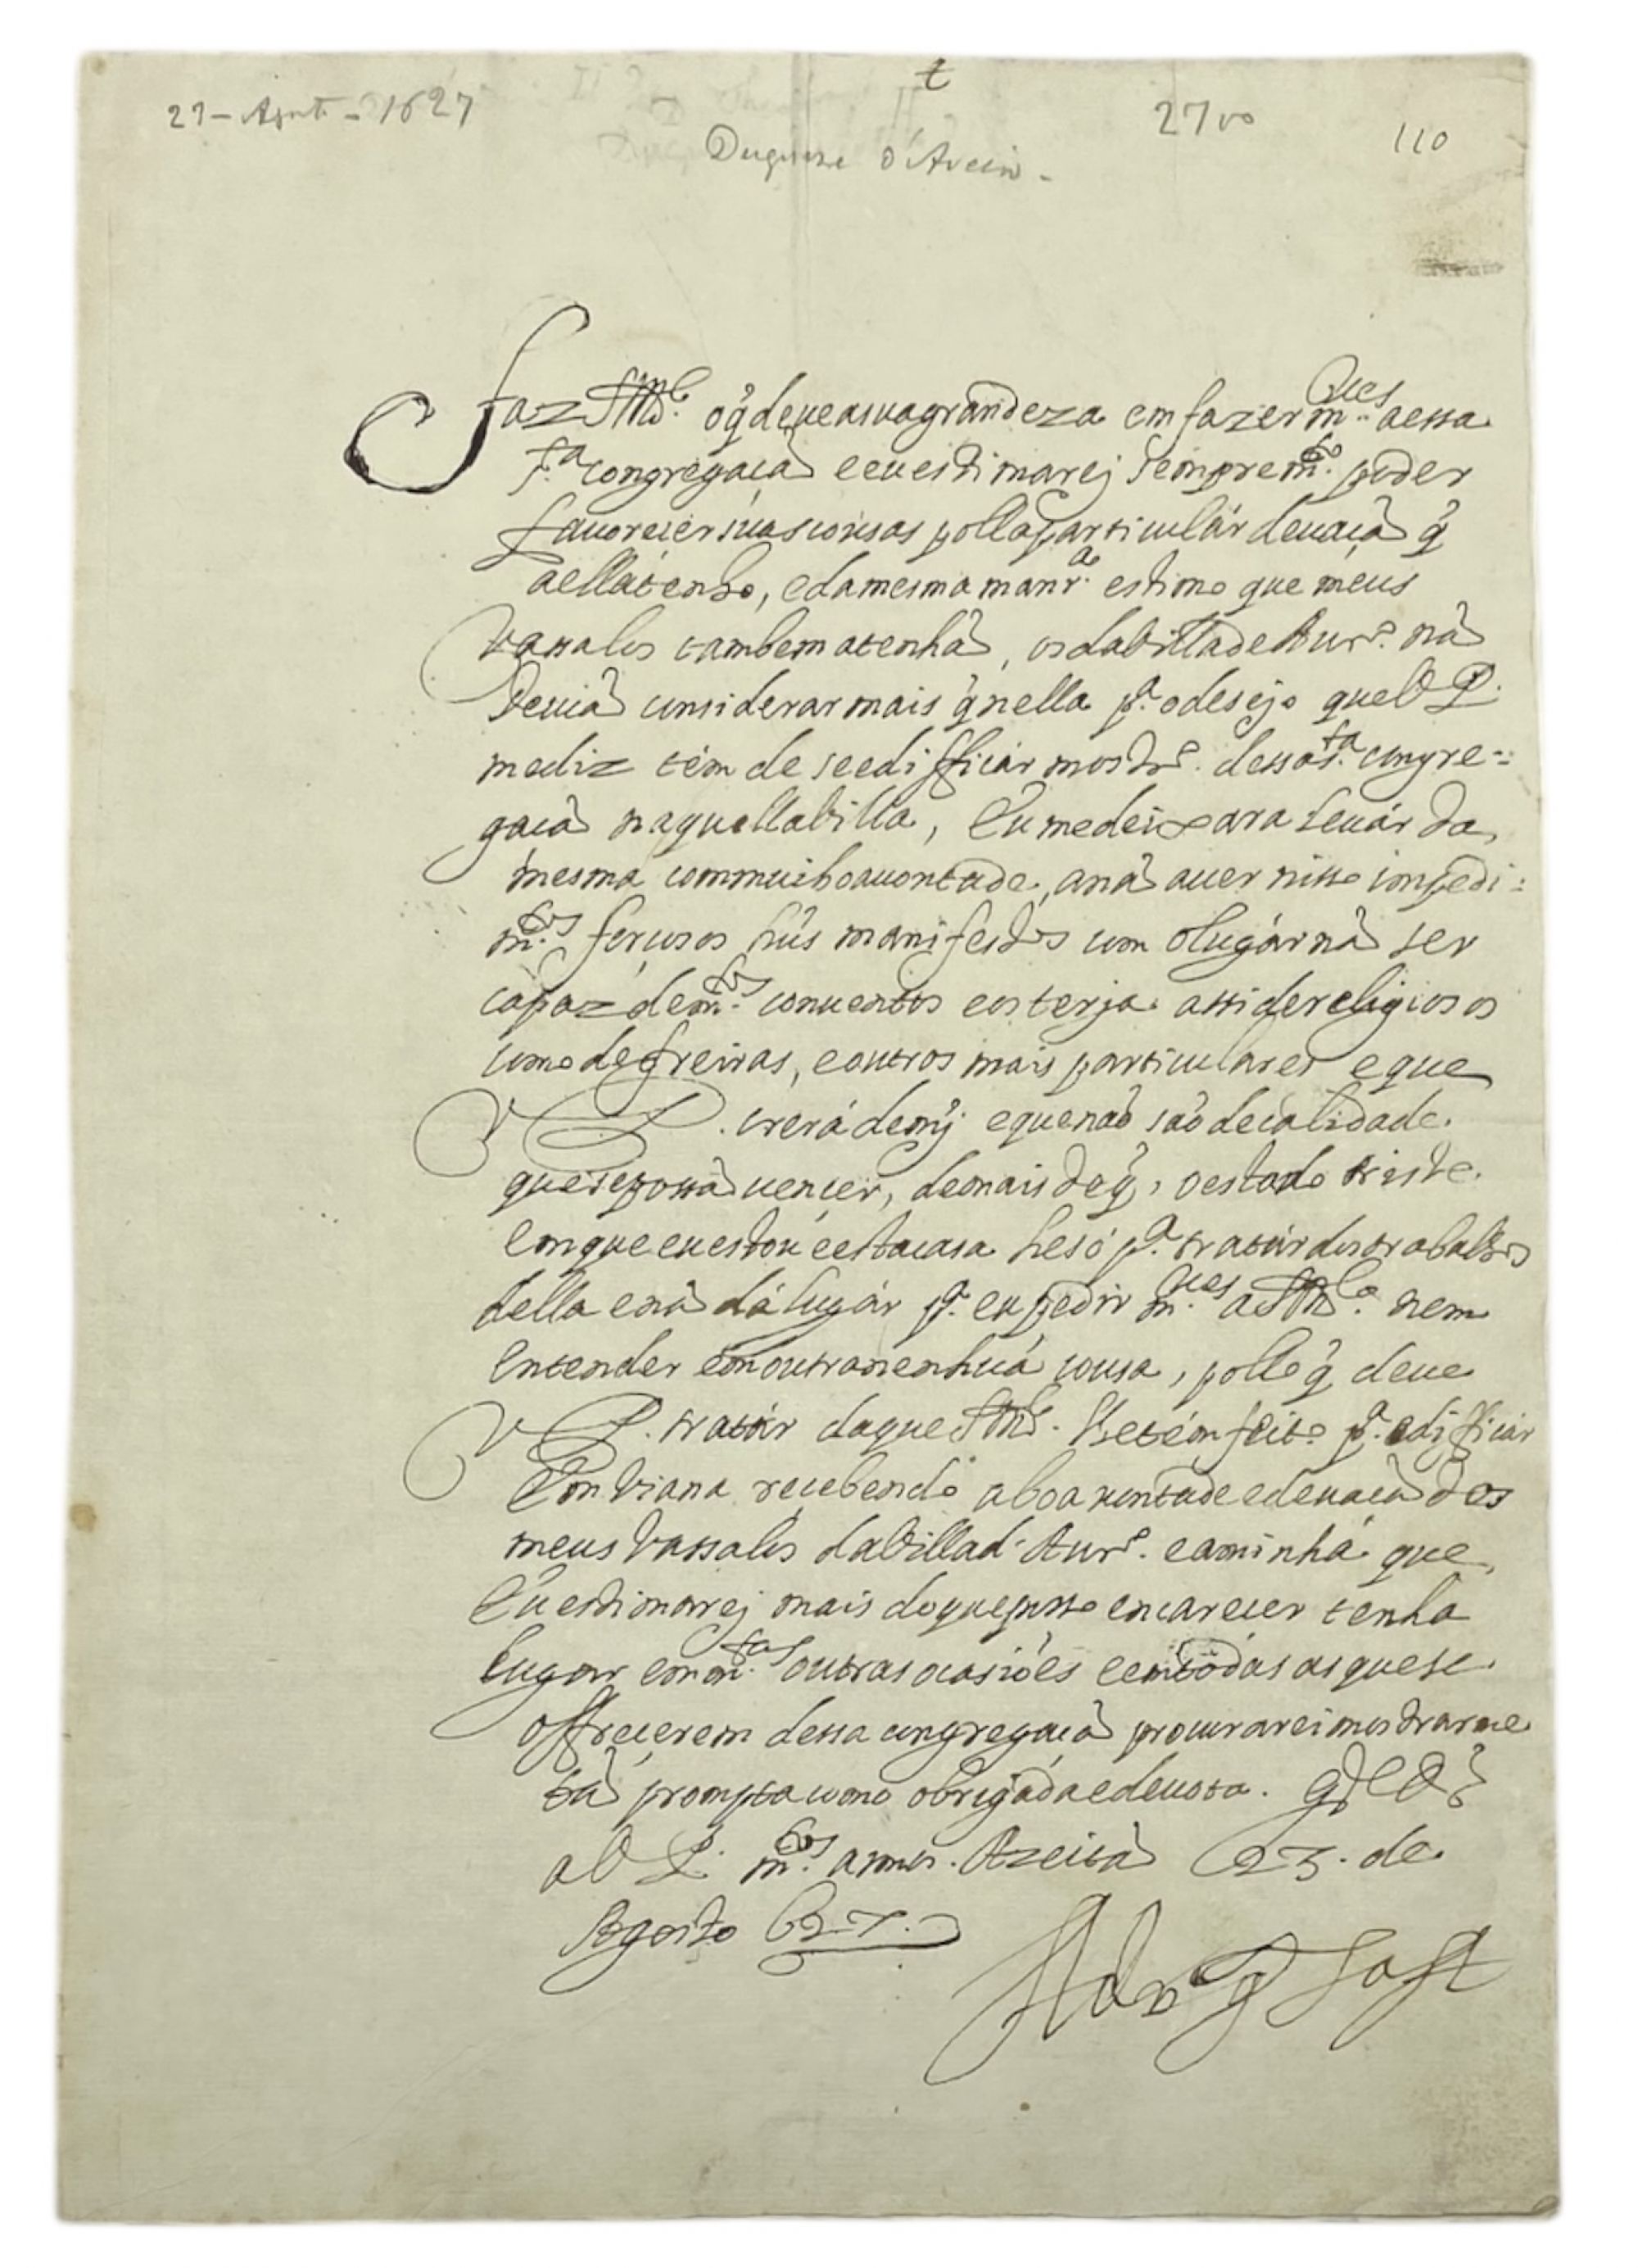 t
27 - Agosto - 1627
27 vo
110
Duqueza d'Aveiro -
Faz SMde. o q̃ deue a sua grandeza em fazer m.ces a essa
s.ta congregacã e eu estimarej sempre m.to poder
fauorecer suas cousas polla particulár deuacã q̃
a ella tenho, e da mesma manr.a estimo que meus
Vassalos tambem a tenhã, os da Villa de Aur.o nã
deuiã considerar mais q̃ nella p.a o desejo que V P.
me diz tém de se edifficár mostr.o dessa s.ta congre=
gacã naquella Villa, Eu me deixara leuár da
mesma com mui boa uontade, a nã auer nisso impedi=
m.tos forcosos hũs manifestos com o lugár nã ser
capaz de m.tos conuentos e os ter ja assi de religiosos
como de freiras, e outros mais particulares e que
V P. crerá de mj̃ e que naõ saõ de calidade
que se possã uencer, demais de q̃, o estado triste
em que eu estou e esta casa he só p.a tratár dos trabalhos
della e nã dá lugár p.a eu pedir m.ces a SMde. nem
entender em outra nenhuã cousa, pollo q̃ deue
V P. tratár da que SMde. lhe tém feito p.a edifficár
em Viana recebendo a boa uontade e deuacã dos
meus Vassalos da Villa d'Aur.o e aminha que
Eu estimarej mais do que posso encarecer tenha
lugar em m.tas outras ocasiões e em todas as que se
offrecerem dessa congregacã procurarei mostrarme
tã prompta como obrigada e deuota. G.de Ds
a V P. m.tos annos. Azeitã 23. de
Agosto 627.